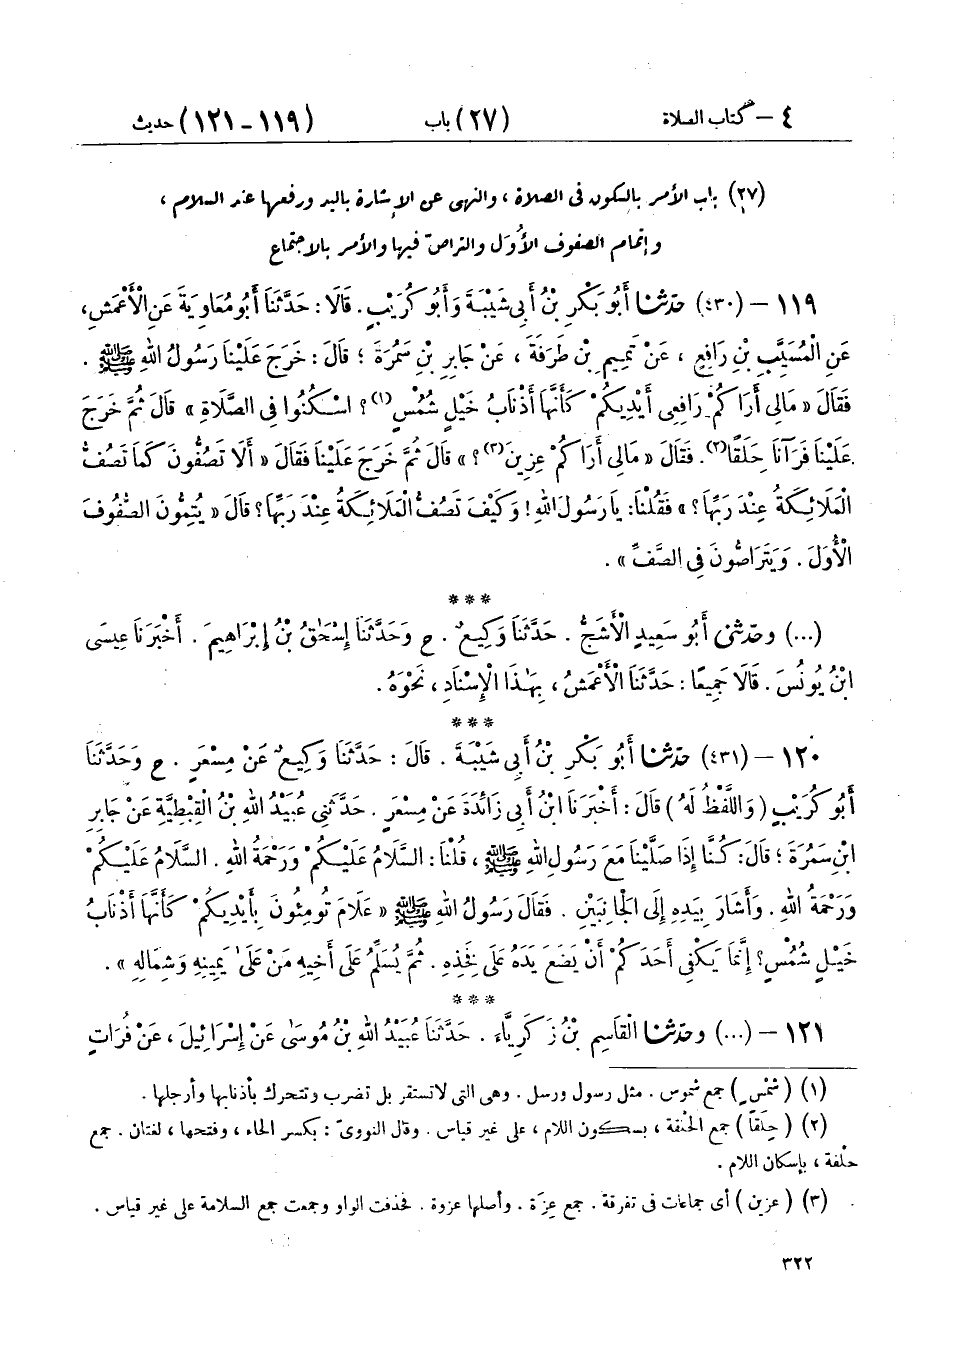 ٤ – كتاب الصلاة (٢٧) باب (١١٩ - ١٢١) حديث
(٢٧) باب الأمر بالسكون فى الصلاة ، والنهى عن الإشارة باليد ورفعها عند السلام ،
وإتمام الصفوف الأُوَل والتراصّ فيها والأمر بالاجتماع
١١٩ – (٤٣٠) حَدَّثَنَا أَبُو بَكْرِ بْنُ أَبِي شَيْبَةَ وَأَبُو كُرَيْبٍ . قَالَا : حَدَّثَنَا أَبُو مُعَاوِيَةَ عَنِ الْأَعْمَشِ ،
عَنِ الْمُسَيَّبِ بْنِ رَافِعٍ ، عَنْ تَمِيمِ بْنِ طَرَفَةَ ، عَنْ جَابِرِ بْنِ سَمُرَةَ ؛ قَالَ : خَرَجَ عَلَيْنَا رَسُولُ اللهِ ﷺ .
فَقَالَ « مَالِي أَرَاكُمْ رَافِعِي أَيْدِيكُمْ كَأَنَّهَا أَذْنَابُ خَيْلٍ شُمْسٍ (١) ؟ اسْكُنُوا فِي الصَّلَاةِ » قَالَ ثُمَّ خَرَجَ
عَلَيْنَا فَرَآنَا حَلَقًا (٢) . فَقَالَ « مَالِي أَرَاكُمْ عِزِينَ (٣) ؟ » قَالَ ثُمَّ خَرَجَ عَلَيْنَا فَقَالَ « أَلَا تَصُفُّونَ كَمَا تَصُفُّ
الْمَلَائِكَةُ عِنْدَ رَبِّهَا ؟ » فَقُلْنَا : يَا رَسُولَ اللهِ ! وَكَيْفَ تَصُفُّ الْمَلَائِكَةُ عِنْدَ رَبِّهَا ؟ قَالَ « يُتِمُّونَ الصُّفُوفَ
الْأُوَلَ . وَيَتَرَاصُّونَ فِي الصَّفِّ » .
***
(...) وحَدَّثَنِي أَبُو سَعِيدٍ الْأَشَجُّ . حَدَّثَنَا وَكِيعٌ . ح وَحَدَّثَنَا إِسْحَاقُ بْنُ إِبْرَاهِيمَ . أَخْبَرَنَا عِيسَى
ابْنُ يُونُسَ . قَالَا جَمِيعًا : حَدَّثَنَا الْأَعْمَشُ ، بِهَذَا الْإِسْنَادِ ، نَحْوَهُ .
***
١٢٠ – (٤٣١) حَدَّثَنَا أَبُو بَكْرِ بْنُ أَبِي شَيْبَةَ . قَالَ : حَدَّثَنَا وَكِيعٌ عَنْ مِسْعَرٍ . ح وَحَدَّثَنَا
أَبُو كُرَيْبٍ ( وَاللَّفْظُ لَهُ ) قَالَ : أَخْبَرَنَا ابْنُ أَبِي زَائِدَةَ عَنْ مِسْعَرٍ . حَدَّثَنِي عُبَيْدُ اللهِ بْنُ الْقِبْطِيَّةِ عَنْ جَابِرِ
ابْنِ سَمُرَةَ ؛ قَالَ : كُنَّا إِذَا صَلَّيْنَا مَعَ رَسُولِ اللهِ ﷺ ، قُلْنَا : السَّلَامُ عَلَيْكُمْ وَرَحْمَةُ اللهِ . السَّلَامُ عَلَيْكُمْ
وَرَحْمَةُ اللهِ . وَأَشَارَ بِيَدِهِ إِلَى الْجَانِبَيْنِ . فَقَالَ رَسُولُ اللهِ ﷺ « عَلَامَ تُومِئُونَ بِأَيْدِيكُمْ كَأَنَّهَا أَذْنَابُ
خَيْلٍ شُمْسٍ ؟ إِنَّمَا يَكْفِي أَحَدَكُمْ أَنْ يَضَعَ يَدَهُ عَلَى فَخِذِهِ . ثُمَّ يُسَلِّمُ عَلَى أَخِيهِ مَنْ عَلَى يَمِينِهِ وَشِمَالِهِ » .
***
١٢١ – (...) وحَدَّثَنَا الْقَاسِمُ بْنُ زَكَرِيَّاءَ . حَدَّثَنَا عُبَيْدُ اللهِ بْنُ مُوسَى عَنْ إِسْرَائِيلَ ، عَنْ فُرَاتٍ
(١) ( شُمْسٍ ) جمع شموس . مثل رسول ورسل . وهى التى لا تستقر بل تضرب وتتحرك بأذنابها وأرجلها .
(٢) ( حِلَقًا ) جمع الحلقة ، بسكون اللام ، على غير قياس . وقال النووىّ : بكسر الحاء ، وفتحها ، لغتان . جمع
حلْقة ، بإسكان اللام .
(٣) ( عزين ) أى جماعات فى تفرقة . جمع عِزَة . وأصلها عزوة . فحذفت الواو وجمعت جمع السلامة على غير قياس .
٣٢٢